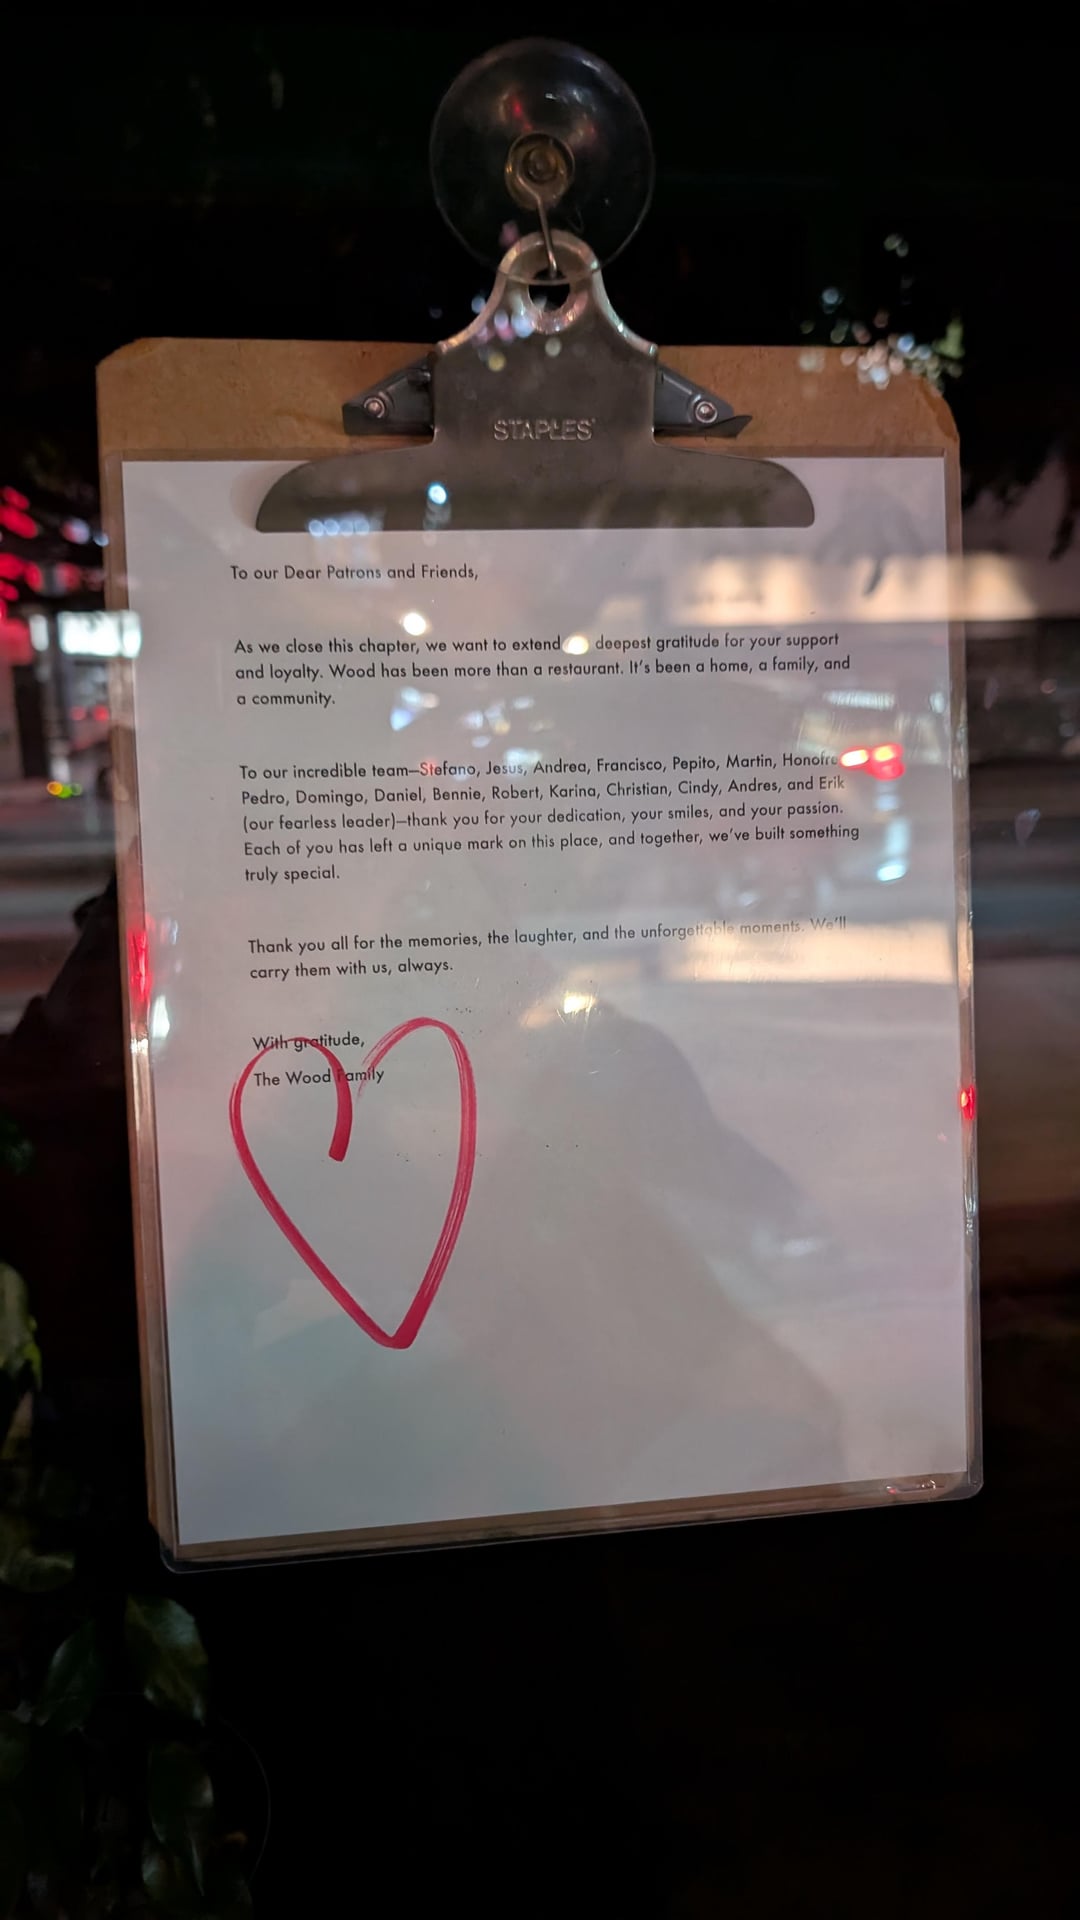 STAPLES
To our Dear Patrons and Friends,
As we close this chapter, we want to extend deepest gratitude for your support
and loyalty. Wood has been more than a restaurant. It's been a home, a family, and
a community.
To our incredible team—Stefano, Jesus, Andrea, Francisco, Pepito, Martin, Honofre
Pedro, Domingo, Daniel, Bennie, Robert, Karina, Christian, Cindy, Andres, and Erik
(our fearless leader)—thank you for your dedication, your smiles, and your passion.
Each of you has left a unique mark on this place, and together, we've built something
truly special.
Thank you all for the memories, the laughter, and the unforgettable moments. We'll
carry them with us, always.
With gratitude,
The Wood Family